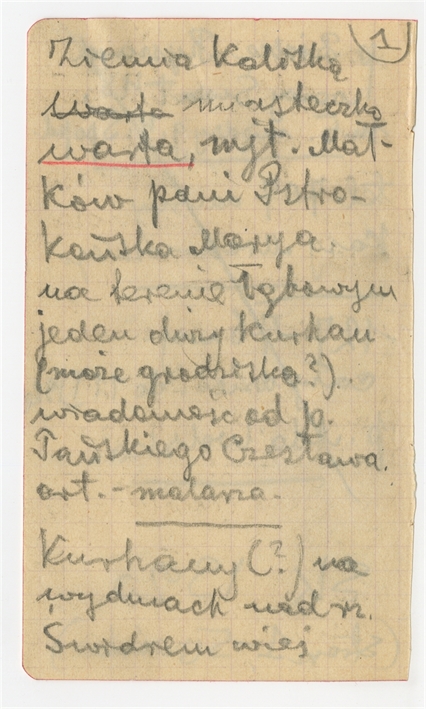 1
Ziemia Kaliska
Warta miasteczko
Warta, mjt. Mał-
ków pani Pstro-
końska Marya.
na terenie łąkowym
jeden duży kurhan
(może grodzisko?)
wiadomość od p.
Tańskiego Czesława.
art. - malarza.
Kurhany (?) na
wydmach nad rz.
Swidrem wieś